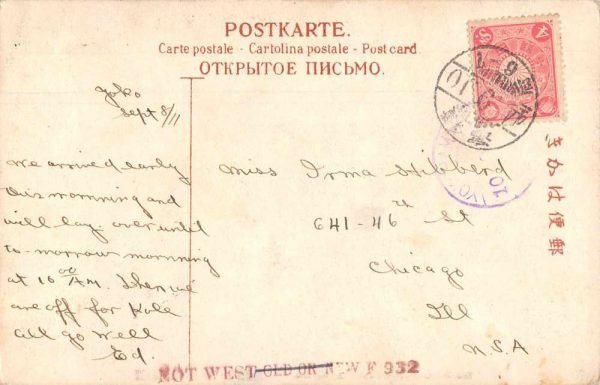 POSTKARTE.
Carte postale - Cartolina postale - Post card
ОТКРЫТОЕ ПИСЬМО.
きかは便郵
Yoko
Sept 8/11
We arrived early
this mornning and
will lay over until
to-morrow mornning
at 10 00/AM. Then we
are off for Kobe
all go well
Ed.
Miss Irma Hibberd
641-46 St
Chicago
Ill
U.S.A
NOT WEST OLD OR NEW F 932